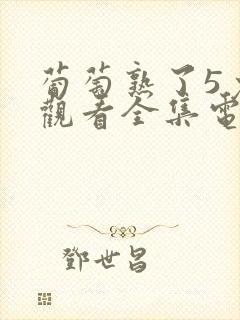 葡萄熟了5
觀看全集電
鄧世昌